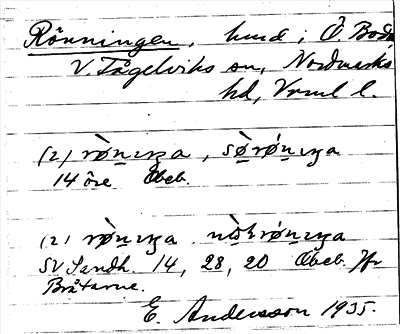 Rönningen, hmd i Ö. Boda
V. Fågelviks sn, Nordmarks
hd, Vrml l.
(2) rø̀nıŋa, sø̀rǿnıŋa
14 öre Obeb.
(2) rø̀nıŋa nòḷrǿnıŋa
SV Sandh. 14, 28, 20 Obeb. Jfr
Bråtarne.
E. Andersson 1935.